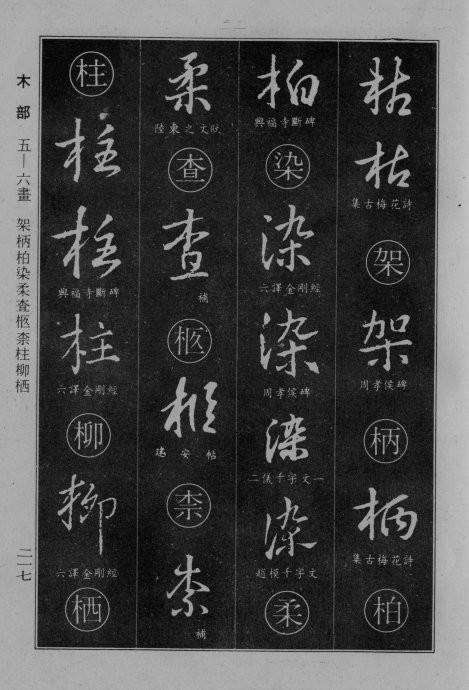 枯
枯
集古梅花詩
架
架
周孝侯碑
柄
柄
集古梅花詩
柏
柏
興福寺斷碑
染
染
六譯金剛經
染
周孝侯碑
染
二儀千字文一
染
趙模千字文
柔
柔
陸東之文賦
查
查
補
柩
柩
瑞安帖
柰
柰
補
柱
柱
柱
興福寺斷碑
柱
六譯金剛經
柳
柳
六譯金剛經
栖
木部 五—六畫 架柄柏染柔查柩柰柱柳栖
二一七